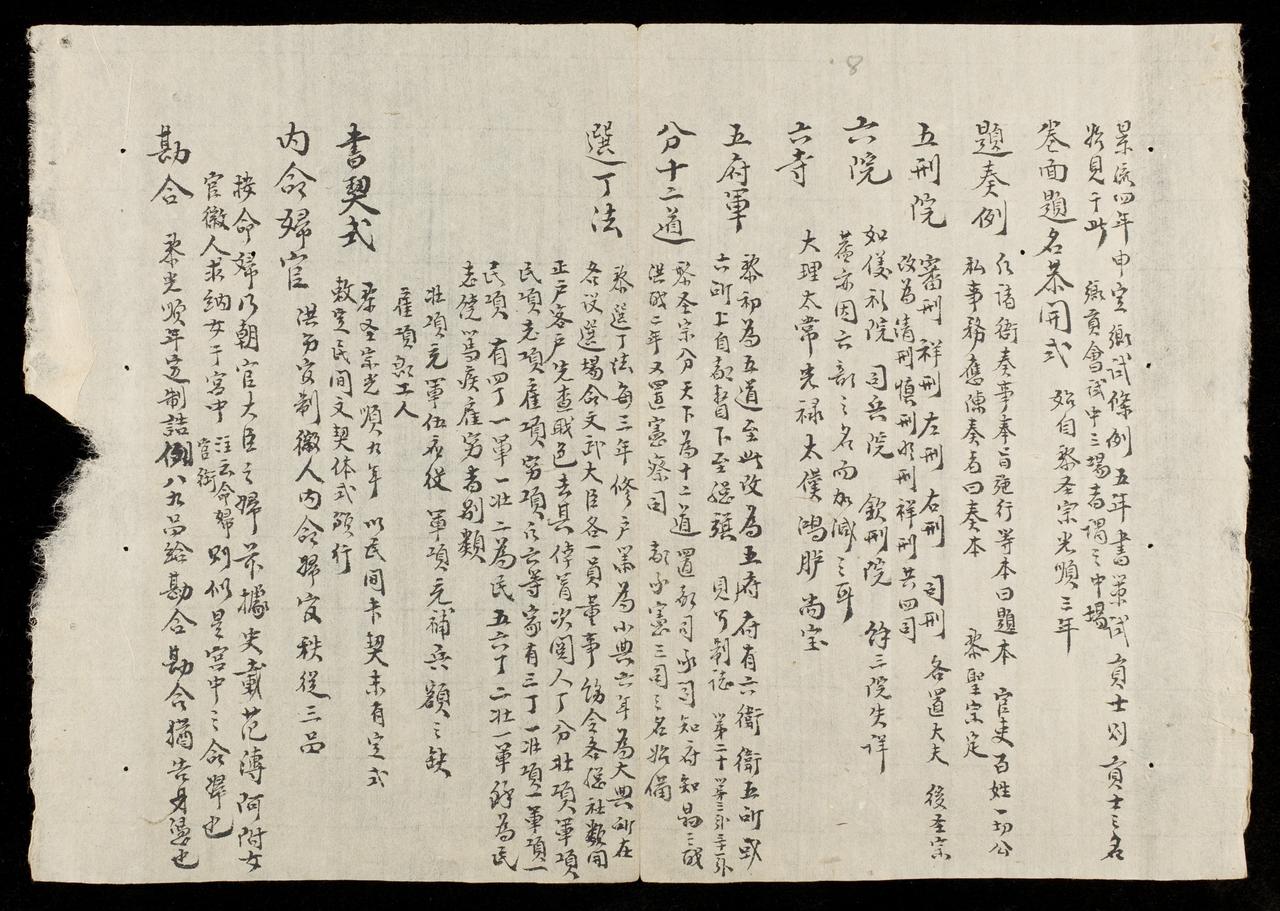 景流四年申定鄉試條例 五年書策試貢士則貢士之名
始見于此 鄉貢會試中三場者謂之中場
卷面題名恭開式 始自黎圣宗光順三年
題奏例 凡諸衙奏事奉旨施行等本曰題本 官吏百姓一切公
私事務應陳奏者曰奏本 黎聖宗定
五刑院 審刑 祥刑 左刑 右刑 司刑 各置大夫 後圣宗
改為清刑慎刑 刑祥刑共四司
六院 如仪礼院 司兵院 欽刑院 餘三院失詳
蓋亦因六部之名而加減之耳
六寺 大理太常光禄太僕鴻胪尚宝
五府軍 黎初為五道至此改為五府府有六衛衛五所或
六所上自都督下至総旗 見官制誌
分十二道 黎圣宗分天下為十二道置都司承司知府知县之職
洪德二年又置憲察司 都承憲三司之名始備
選丁法 黎選丁法每三年修户籍為小典六年為大典所在
各設選場命文武大臣各一員董事 飭令各総社数開
正户客户先查職色去其停首次閱人丁分壮項軍項
民項老項雇項穷項凡六等家有三丁一壮項一軍項一
民項 有四丁一軍一壮二為民 五六丁二壮一軍餘為民
老饒篤疾雇穷者别類
壮項充軍伍永從 軍項充補兵額之缺
雇項 工人
書契式 黎圣宗光順九年 以民間文契未有定式
敕定民間文契体式頒行
内命婦官 洪 官制徽人内命婦官秩從三品
按命婦乃朝官大臣之婦 據史載范溥阿附女
官徽人求納女于宮中 注云命婦官銜 則似是宮中之命婦也
勘合 黎光順年定制誥例八九品給勘合勘合猶告身憑也
8